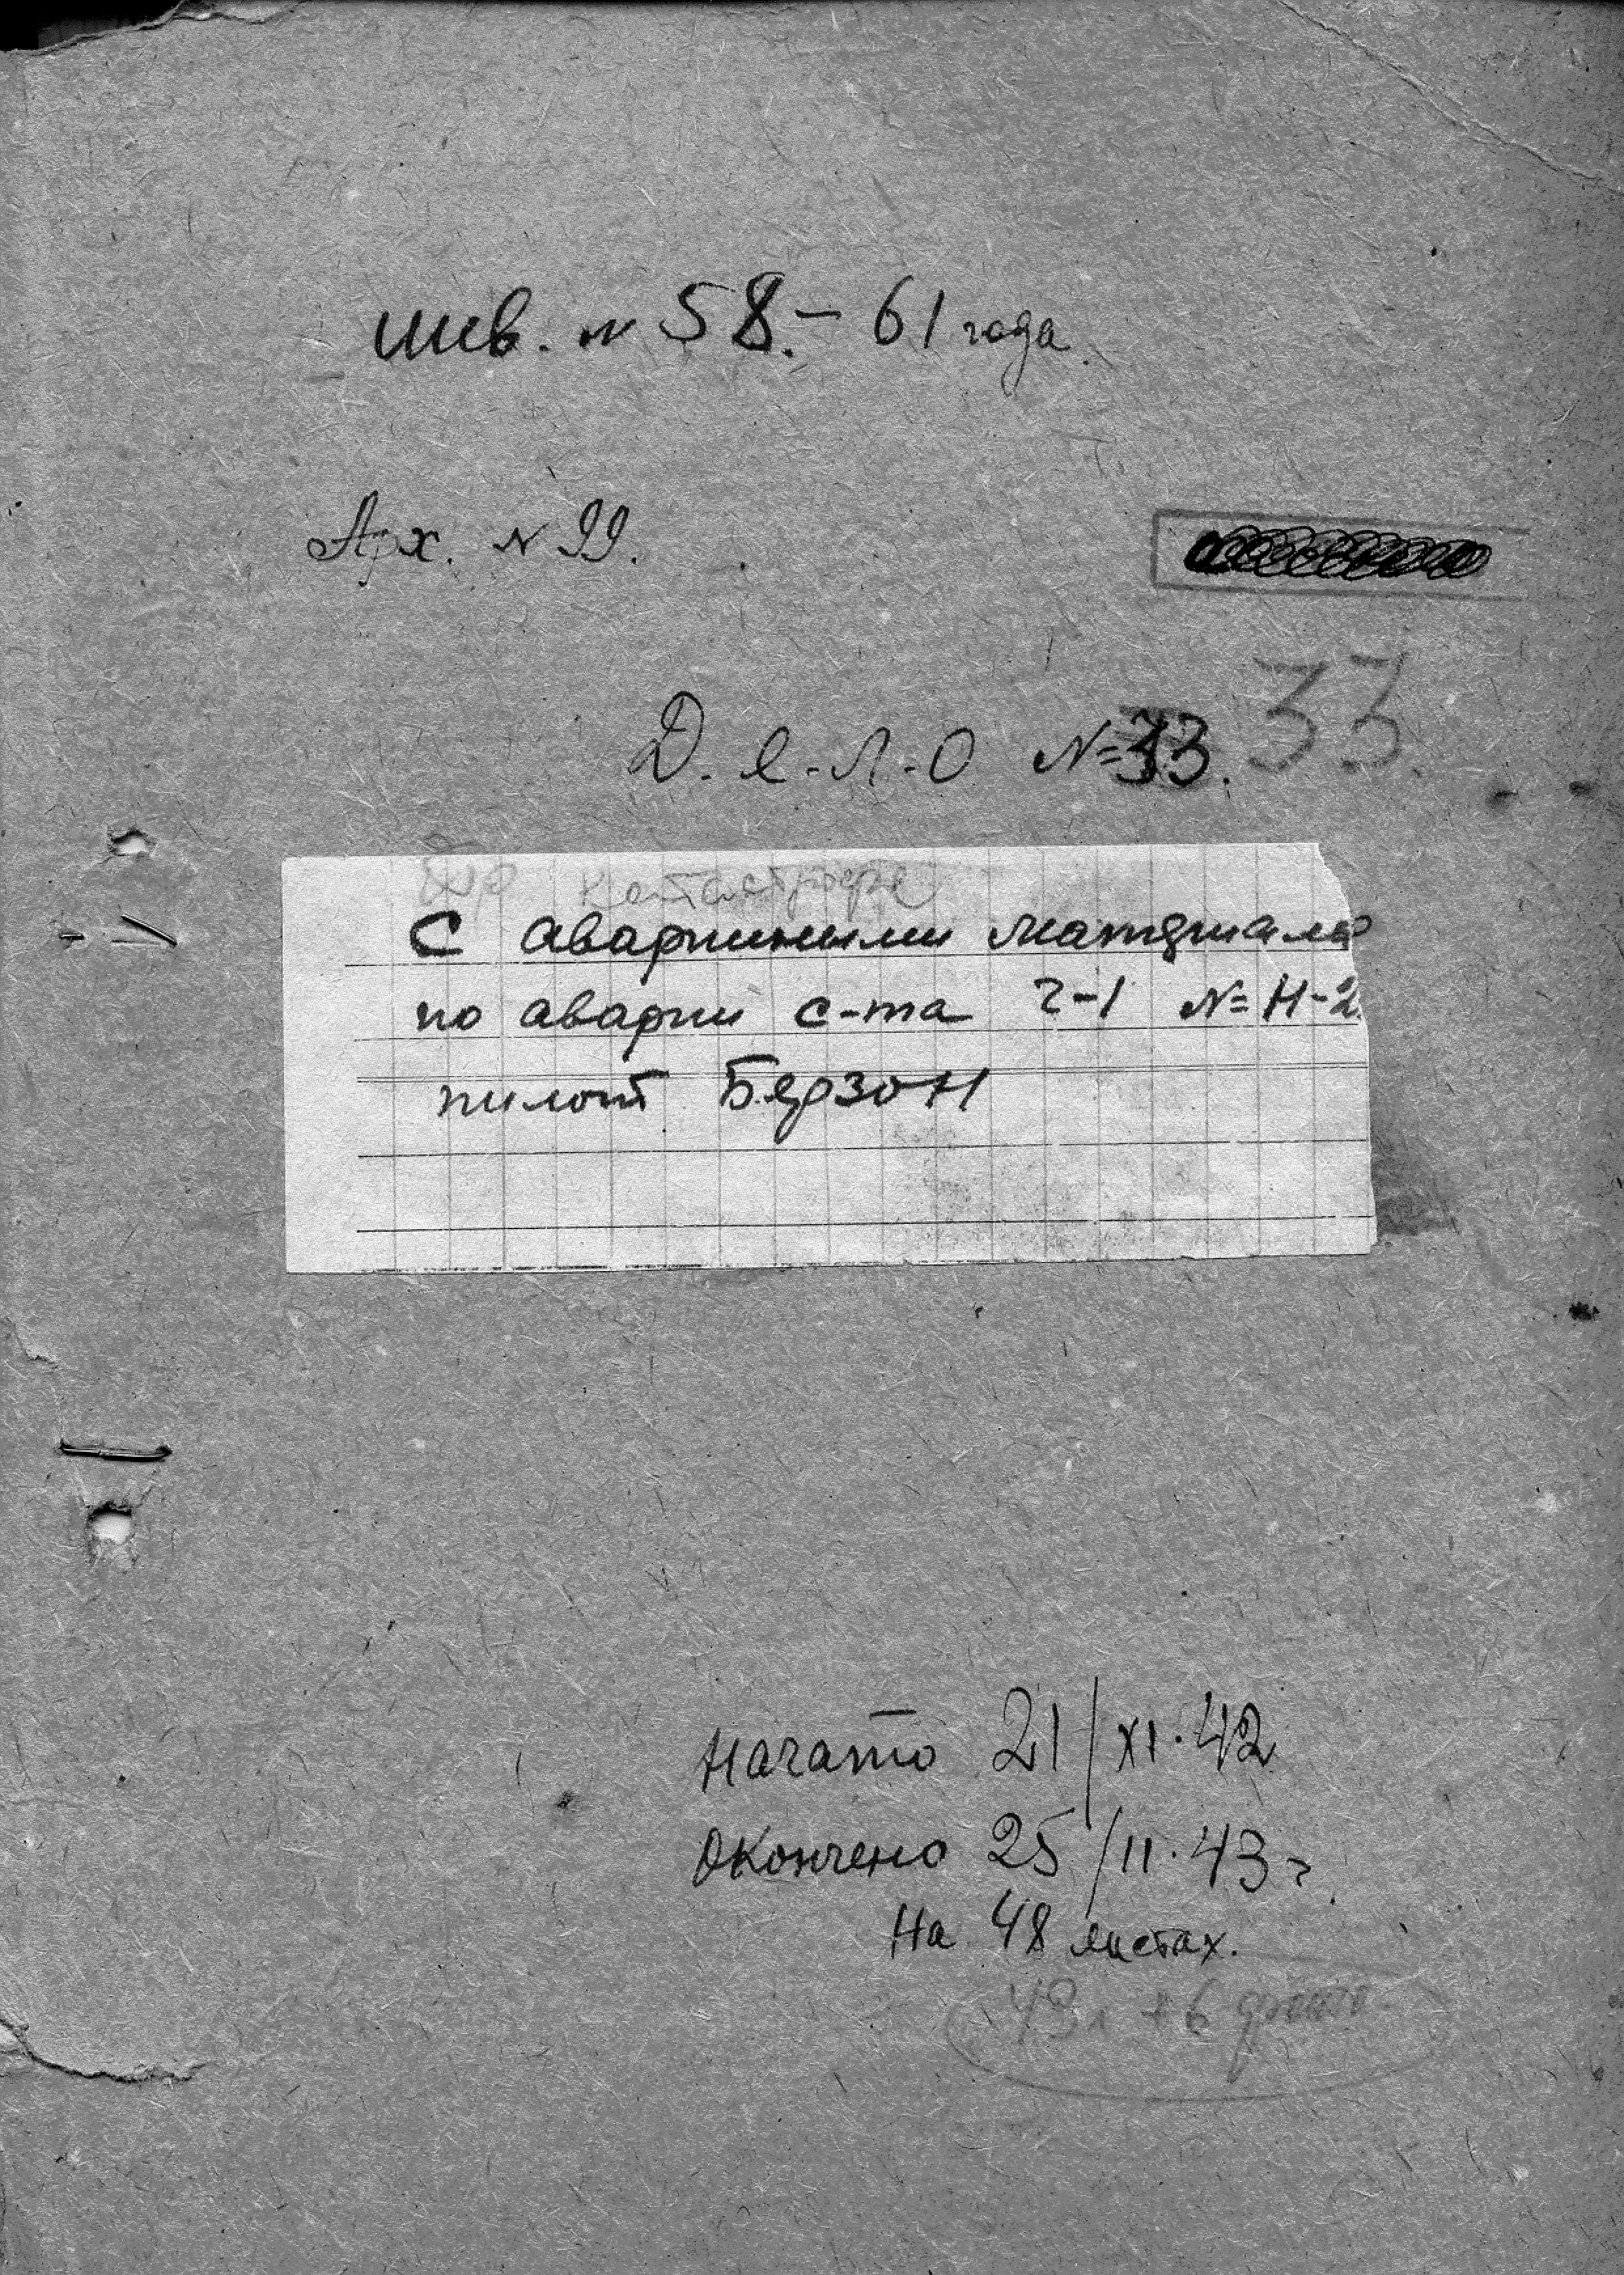 инв. № 58.- 61 года.
Арх. № 99.
Д.е-л-о №33. 33.
Катастрофе
С аварийными материала
по аварии с-та Г-1 № Н-2
пилот Берзон
Начато 21/XI.42
Окончено 25/II.43 г.
На 48 листах.
+ 6 фото